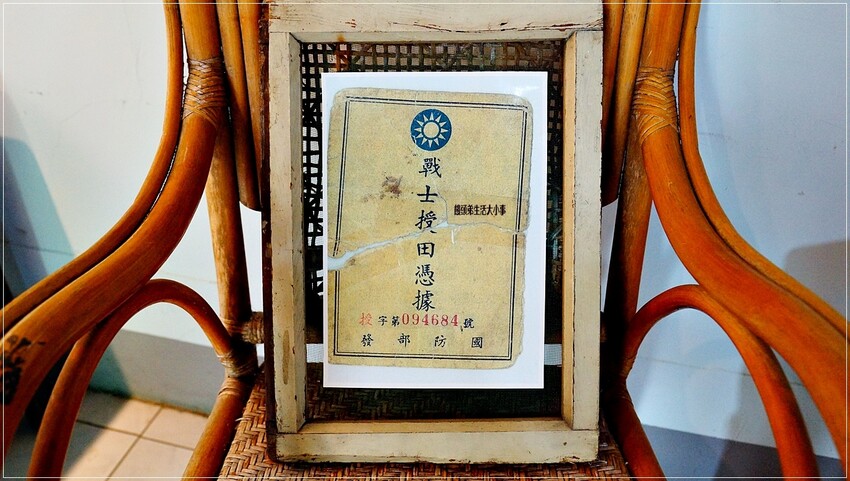 戰士授田憑據
饅頭弟生活大小事
授字第094684號
國防部發